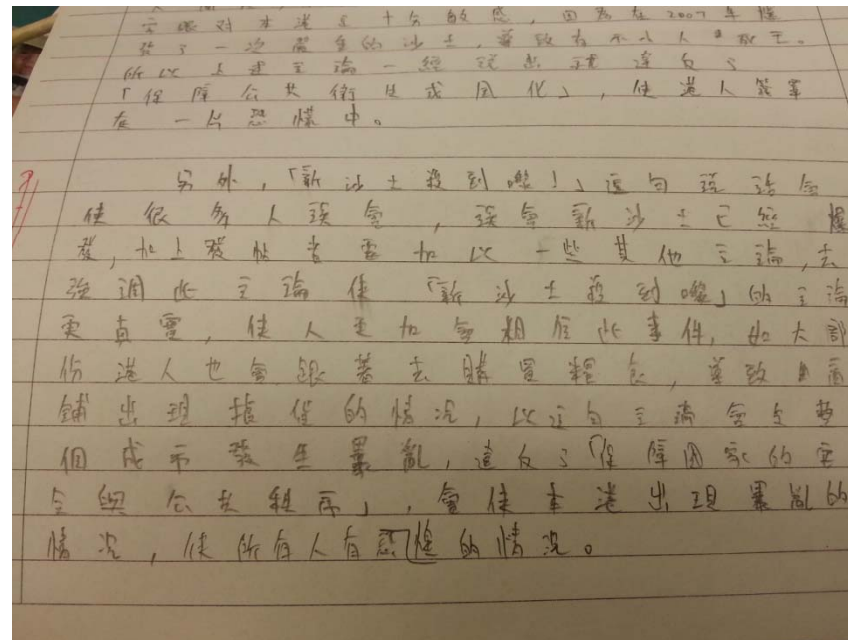 對本港 十分敏感，因為在2007年爆
發了一次嚴重的沙士，導致有不少人 死亡。
所以上述言論一經 違反了
「保障公共衛生或風化」，使港人籠罩
在一片恐慌中。
另外，「新沙士殺到嚟！」這句說話會
使很多人誤會，誤會新沙士已經爆
發，加上發帖者再加以一些其他言論，去
強調此言論使「新沙士殺到嚟」的言論
更真實，使人更加會相信此事件，如大部
份港人也會跟著去購買糧食，導致 商
鋪出現 的情況，以這句言論會 整
個成市發生暴亂，違反了「保障國家的安
全與公共秩序」，會使本港出現暴亂的
情況，使所有人有恐惶的情況。